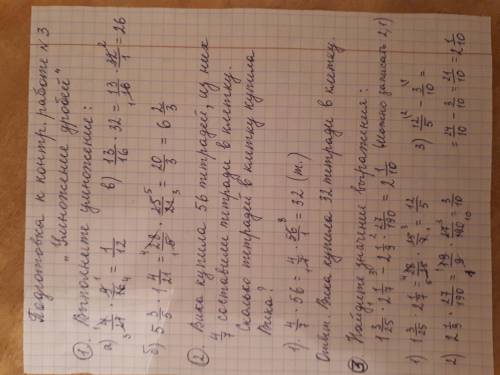 Подготовка к контр. работе №3
"Умножение дробей"
① Выполните умножение:
а) 4/27 · 9/16 = 1/12   в) 13/16 · 32 = 13/16 · 32/1 = 26
б) 5 3/5 · 1 4/21 = 28/5 · 25/21 = 20/3 = 6 2/3
② Вика купила 56 тетрадей, из них
4/7 составили тетради в клетку.
Сколько тетрадей в клетку купила
Вика?
1) 4/7 · 56 = 4/7 · 56/1 = 32 (т.)
Ответ. Вика купила 32 тетради в клетку.
③ Найдите значение выражения:
1 3/25 · 2 1/7 - 2 1/9 · 27/190 = 2 1/10 (можно записать 2,1)
1) 1 3/25 · 2 1/7 = 28/25 · 15/7 = 12/5   3) 12/5 - 3/10 =
2) 2 1/9 · 27/190 = 19/9 · 27/190 = 3/10   = 24/10 - 3/10 = 21/10 = 2 1/10